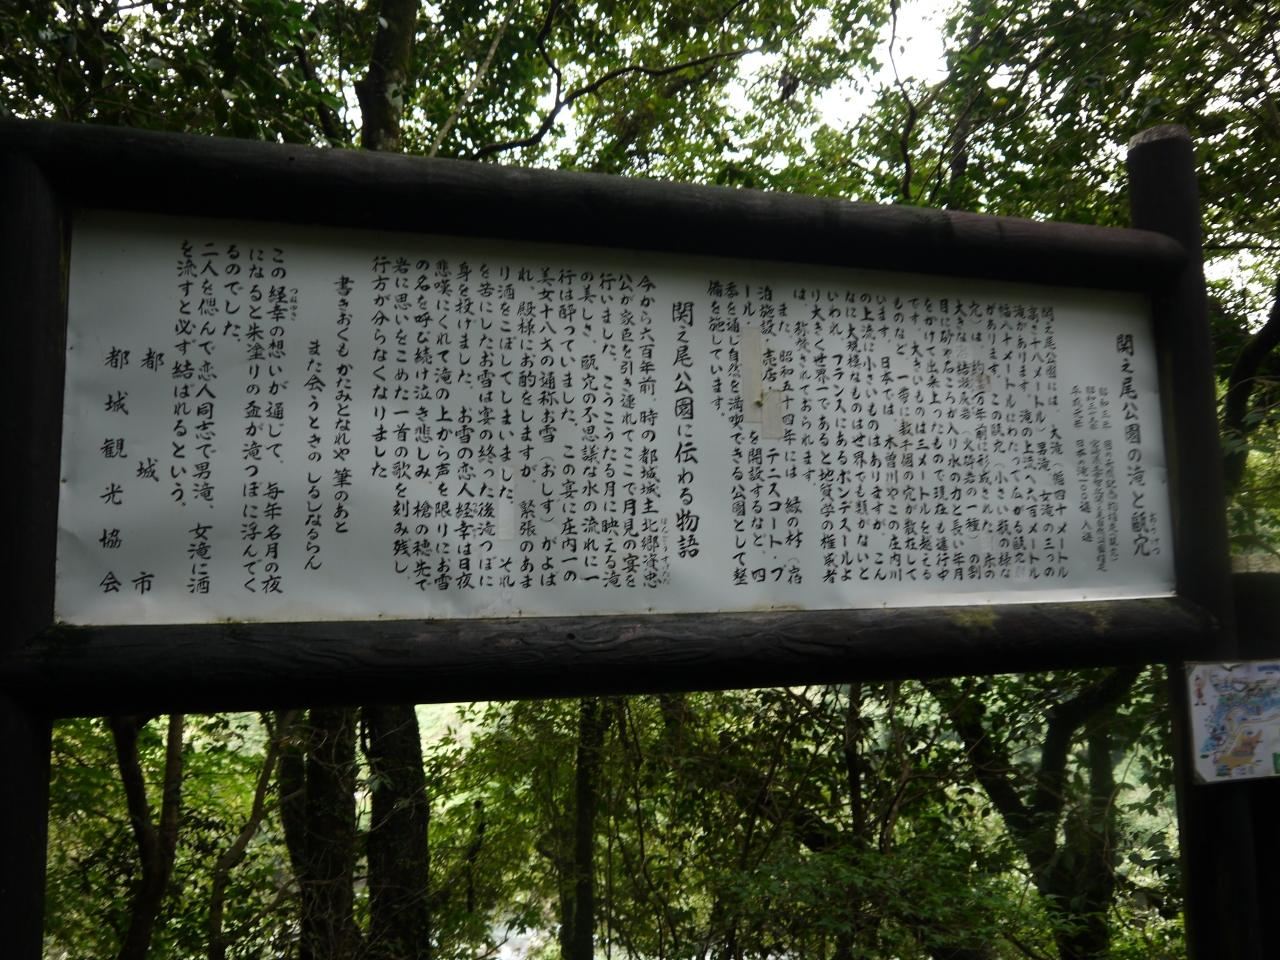 関之尾公園の滝と甌穴
おうけつ
昭和三年
昭和三十三年
平成二年 日本の滝一〇〇選 入選
関之尾公園は、大滝（幅四十メートル
高さ十八メートル）男滝、女滝の三つの
滝があります。滝の上流へ六百メートル
幅八十メートルにわたって広がる甌穴
があります。この甌穴（小さい数の様な
穴）は、約 万年前に形成された
大きな 結凝灰岩（火砕岩の一種）の割
目に砂や石ころが入り水の力と長い年月
をかけて出来上ったもので現在も進行中
です。大きいものは三メートルを越える
ものなど、一帯に数千個の穴が散在して
います。日本では、木曽川やこの庄内川
の上流に小さいものはありますが、こん
なに大規模なものは世界でも類がないと
いわれ、フランスにあるポンデスールよ
り大きく世界一であると地質学の権威者
は、称賛されております。
また、昭和五十四年には、緑の村、宿
泊施設、売店、 テニスコート・プ
ール、 を開設するなど、四
季を通じ自然を満喫できる公園として整
備を施しています。
関之尾公園に伝わる物語
ほんごうすけただ
今から六百年前、時の都城城主北郷 忠
公が家臣を引き連れてここで月見の宴を
行いました。こうこうたる月に映える滝
の美しさ、甌穴の不思議な水の流れに一
行は酔っていました。この宴に庄内一の
美女十八才の通称お雪（おしず）がよば
れ、殿様にお酌をしますが、緊張のあま
り酒をこぼしてしまいました。 それ
を苦にしたお雪は宴の終った後滝つぼに
身を投げました。お雪の恋人経幸は日夜
悲嘆にくれて滝の上から声を限りにお雪
の名を呼び続け泣き悲しみ、槍の穂先で
岩に思いをこめた一首の歌を刻み残し、
行方が分らなくなりました
書きおくも かたみとなれや 筆のあと
また会うときの しるしなるらん
つねゆき
この経幸の想いが通じて、毎年名月の夜
になると朱塗りの盃が滝つぼに浮んでく
るのでした。
二人を偲んで恋人同志で男滝、女滝に酒
を流すと必ず結ばれるという。
都城市
都城観光協会